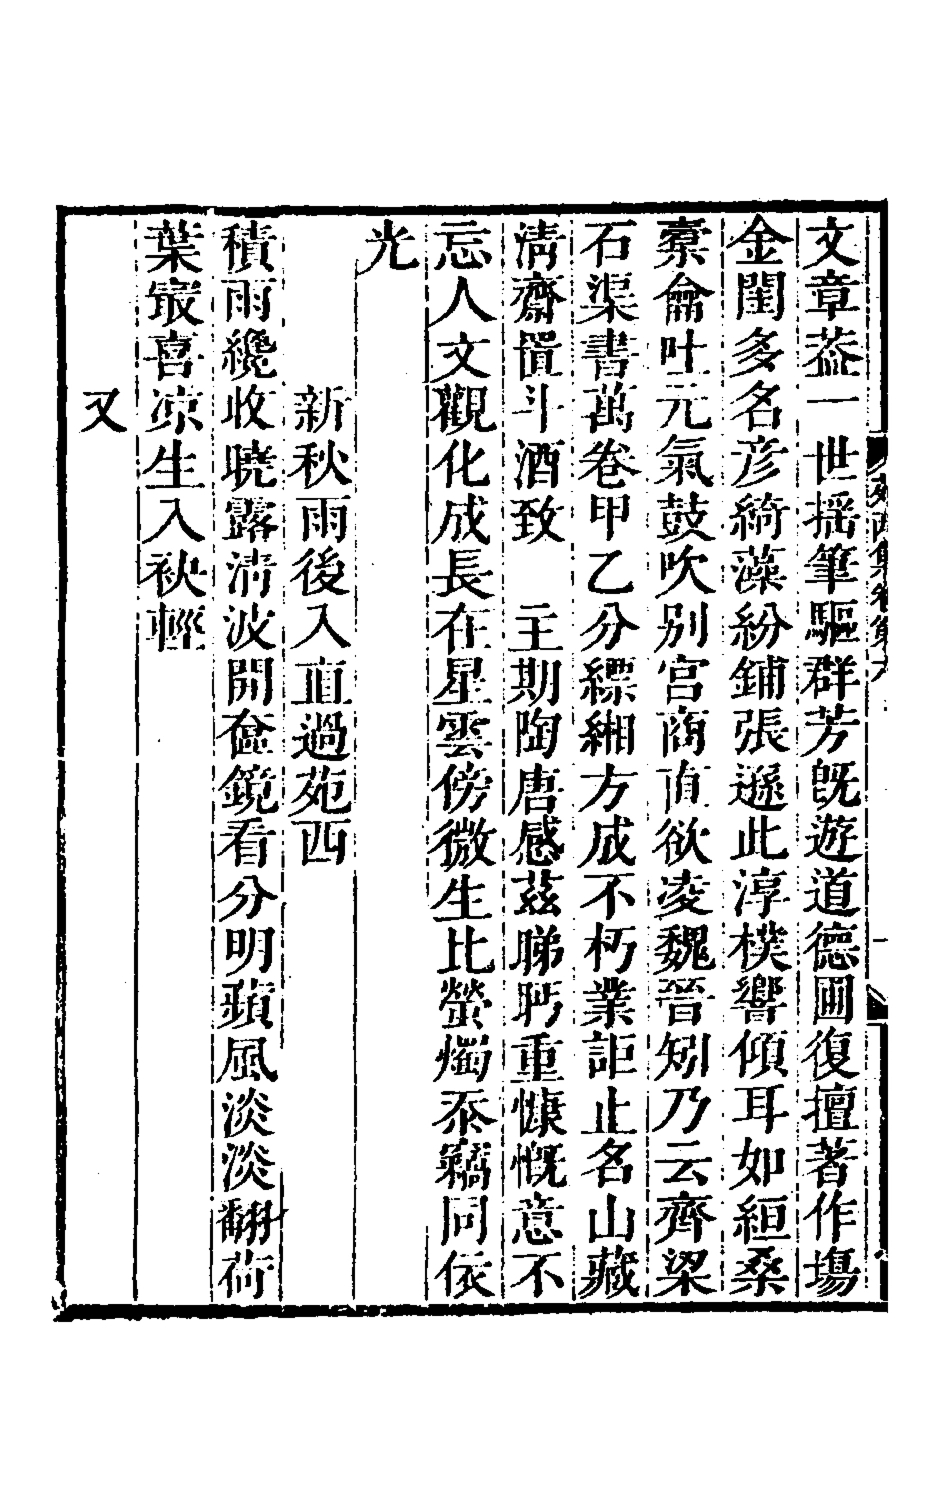 苑西集卷第六
文章葢一世揺筆驅群芳旣遊道德圃復擅著作塲
金閨多名彦綺藻紛鋪張遜此淳樸響傾耳如絙桑
槖龠吐元氣鼓吹别宫商直欲凌魏晉矧乃云齊梁
石渠書萬卷甲乙分縹緗方成不朽業詎止名山藏
淸齋置斗酒致　主期陶唐感茲睇眄重慷慨意不
忘人文觀化成長在星雲傍微生比螢燭忝竊同依
光
新秋雨後入直過苑西
積雨纔收曉露淸波開奩鏡看分明蘋風淡淡翻荷
葉最喜凉生入袂輕
又